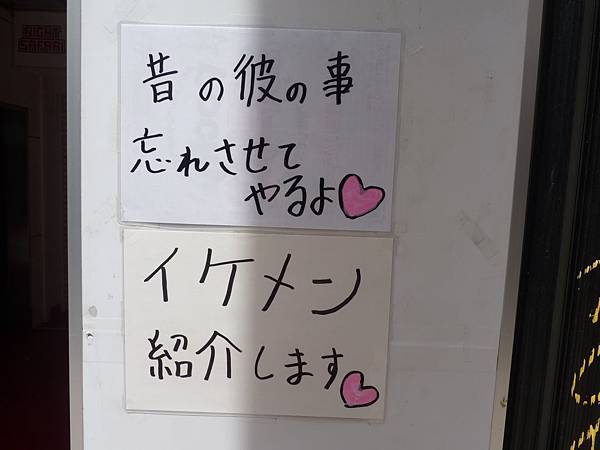 NIGHT
SAFARI
昔の彼の事
忘れさせて
やるよ
イケメン
紹介します